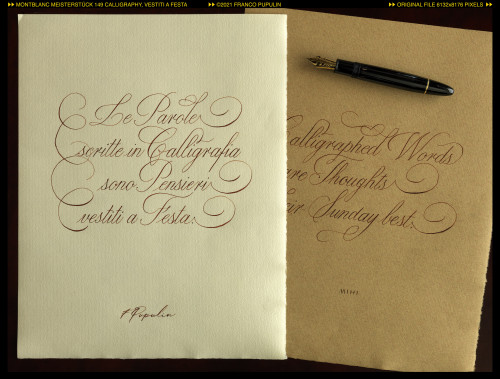 MONTBLANC MEISTERSTÜCK 149 CALLIGRAPHY, VESTITI A FESTA
©2021 FRANCO PUPULIN
ORIGINAL FILE 6132x8176 PIXELS
Le Parole
scritte in Calligrafia
sono Pensieri
vestiti a Festa.
F Pupulin
Calligraphed Words
are Thoughts
Sunday best.